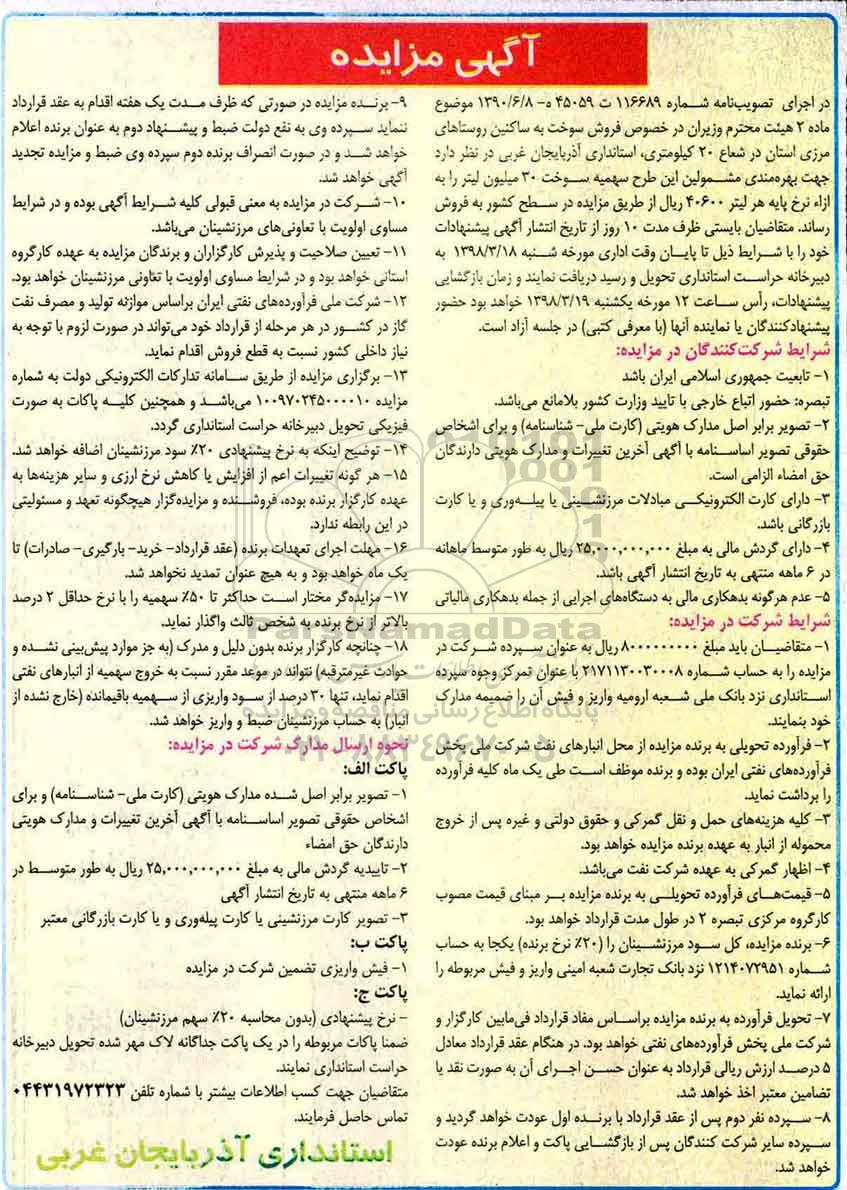 آگهی مزایده
در اجرای تصویب‌نامه شماره ۱۱۶۶۸۹ ت ۴۵۰۵۹ ه- ۱۳۹۰/۶/۸ موضوع
ماده ۲ هیئت محترم وزیران در خصوص فروش سوخت به ساکنین روستاهای
مرزی استان در شعاع ۲۰ کیلومتری، استانداری آذربایجان غربی در نظر دارد
جهت بهره‌مندی مشمولین این طرح سهمیه سوخت ۳۰ میلیون لیتر را به
ازاء نرخ پایه هر لیتر ۴۰۶۰۰ ریال از طریق مزایده در سطح کشور به فروش
رساند. متقاضیان بایستی ظرف مدت ۱۰ روز از تاریخ انتشار آگهی پیشنهادات
خود را با شرایط ذیل تا پایان وقت اداری مورخه شنبه ۱۳۹۸/۳/۱۸ به
دبیرخانه حراست استانداری تحویل و رسید دریافت نمایند و زمان بازگشایی
پیشنهادات، رأس ساعت ۱۲ مورخه یکشنبه ۱۳۹۸/۳/۱۹ خواهد بود حضور
پیشنهادکنندگان یا نماینده آنها (با معرفی کتبی) در جلسه آزاد است.
شرایط شرکت‌کنندگان در مزایده:
۱- تابعیت جمهوری اسلامی ایران باشد
تبصره: حضور اتباع خارجی با تایید وزارت کشور بلامانع می‌باشد.
۲- تصویر برابر اصل مدارک هویتی (کارت ملی- شناسنامه) و برای اشخاص
حقوقی تصویر اساسنامه با آگهی آخرین تغییرات و مدارک هویتی دارندگان
حق امضاء الزامی است.
۳- دارای کارت الکترونیکی مبادلات مرزنشینی یا پیله‌وری و یا کارت
بازرگانی باشد.
۴- دارای گردش مالی به مبلغ ۲۵,۰۰۰,۰۰۰,۰۰۰ ریال به طور متوسط ماهانه
در ۶ ماهه منتهی به تاریخ انتشار آگهی باشد.
۵- عدم هرگونه بدهکاری مالی به دستگاه‌های اجرایی از جمله بدهکاری مالیاتی
شرایط شرکت در مزایده:
۱- متقاضیان باید مبلغ ۸۰۰۰۰۰۰۰۰۰ ریال به عنوان سپرده شرکت در
مزایده را به حساب شماره ۲۱۷۱۱۳۰۰۳۰۰۰۸ با عنوان تمرکز وجوه سپرده
استانداری نزد بانک ملی شعبه ارومیه واریز و فیش آن را ضمیمه مدارک
خود بنمایند.
۲- فرآورده تحویلی به برنده مزایده از محل انبارهای نفت شرکت ملی پخش
فرآورده‌های نفتی ایران بوده و برنده موظف است طی یک ماه کلیه فرآورده
را برداشت نماید.
۳- کلیه هزینه‌های حمل و نقل گمرکی و حقوق دولتی و غیره پس از خروج
محموله از انبار به عهده برنده مزایده خواهد بود.
۴- اظهار گمرکی به عهده شرکت نفت می‌باشد.
۵- قیمت‌های فرآورده تحویلی به برنده مزایده بر مبنای قیمت مصوب
کارگروه مرکزی تبصره ۲ در طول مدت قرارداد خواهد بود.
۶- برنده مزایده، کل سود مرزنشینان را (۲۰٪ نرخ برنده) یکجا به حساب
شماره ۱۲۱۴۰۷۲۹۵۱ نزد بانک تجارت شعبه امینی واریز و فیش مربوطه را
ارائه نماید.
۷- تحویل فرآورده به برنده مزایده براساس مفاد قرارداد فی‌مابین کارگزار و
شرکت ملی پخش فرآورده‌های نفتی خواهد بود. در هنگام عقد قرارداد معادل
۵ درصد ارزش ریالی قرارداد به عنوان حسن اجرای آن به صورت نقد یا
تضامین معتبر اخذ خواهد شد.
۸- سپرده نفر دوم پس از عقد قرارداد با برنده اول عودت خواهد گردید و
سپرده سایر شرکت کنندگان پس از بازگشایی پاکت و اعلام برنده عودت
خواهد شد.
۹- برنده مزایده در صورتی که ظرف مدت یک هفته اقدام به عقد قرارداد
ننماید سپرده وی به نفع دولت ضبط و پیشنهاد دوم به عنوان برنده اعلام
خواهد شد و در صورت انصراف برنده دوم سپرده وی ضبط و مزایده تجدید
آگهی خواهد شد.
۱۰- شرکت در مزایده به معنی قبولی کلیه شرایط آگهی بوده و در شرایط
مساوی اولویت با تعاونی‌های مرزنشینان می‌باشد.
۱۱- تعیین صلاحیت و پذیرش کارگزاران و برندگان مزایده به عهده کارگروه
استانی خواهد بود و در شرایط مساوی اولویت با تعاونی مرزنشینان خواهد بود.
۱۲- شرکت ملی فرآورده‌های نفتی ایران براساس موازنه تولید و مصرف نفت
گاز در کشور در هر مرحله از قرارداد خود می‌تواند در صورت لزوم با توجه به
نیاز داخلی کشور نسبت به قطع فروش اقدام نماید.
۱۳- برگزاری مزایده از طریق سامانه تدارکات الکترونیکی دولت به شماره
مزایده ۱۰۰۹۷۰۲۴۵۰۰۰۰۱۰ می‌باشد و همچنین کلیه پاکات به صورت
فیزیکی تحویل دبیرخانه حراست استانداری گردد.
۱۴- توضیح اینکه به نرخ پیشنهادی ۲۰٪ سود مرزنشینان اضافه خواهد شد.
۱۵- هر گونه تغییرات اعم از افزایش یا کاهش نرخ ارزی و سایر هزینه‌ها به
عهده کارگزار برنده بوده، فروشنده و مزایده‌گزار هیچگونه تعهد و مسئولیتی
در این رابطه ندارد.
۱۶- مهلت اجرای تعهدات برنده (عقد قرارداد- خرید- بارگیری- صادرات) تا
یک ماه خواهد بود و به هیچ عنوان تمدید نخواهد شد.
۱۷- مزایده‌گر مختار است حداکثر تا ۵۰٪ سهمیه را با نرخ حداقل ۲ درصد
بالاتر از نرخ برنده به شخص ثالث واگذار نماید.
۱۸- چنانچه کارگزار برنده بدون دلیل و مدرک (به جز موارد پیش‌بینی نشده و
حوادث غیرمترقبه) نتواند در موعد مقرر نسبت به خروج سهمیه از انبارهای نفتی
اقدام نماید، تنها ۳۰ درصد از سود واریزی از سهمیه باقیمانده (خارج نشده از
انبار) به حساب مرزنشینان ضبط و واریز خواهد شد.
نحوه ارسال مدارک شرکت در مزایده:
پاکت الف:
۱- تصویر برابر اصل شده مدارک هویتی (کارت ملی- شناسنامه) و برای
اشخاص حقوقی تصویر اساسنامه با آگهی آخرین تغییرات و مدارک هویتی
دارندگان حق امضاء
۲- تاییدیه گردش مالی به مبلغ ۲۵,۰۰۰,۰۰۰,۰۰۰ ریال به طور متوسط در
۶ ماهه منتهی به تاریخ انتشار آگهی
۳- تصویر کارت مرزنشینی یا کارت پیله‌وری و یا کارت بازرگانی معتبر
پاکت ب:
۱- فیش واریزی تضمین شرکت در مزایده
پاکت ج:
- نرخ پیشنهادی (بدون محاسبه ۲۰٪ سهم مرزنشینان)
ضمنا پاکات مربوطه را در یک پاکت جداگانه لاک مهر شده تحویل دبیرخانه
حراست استانداری نمایند.
متقاضیان جهت کسب اطلاعات بیشتر با شماره تلفن ۰۴۴۳۱۹۷۲۳۲۳
تماس حاصل فرمایند.
استانداری آذربایجان غربی
ParsNamadData
پایگاه اطلاع رسانی مناقصه و مزایده